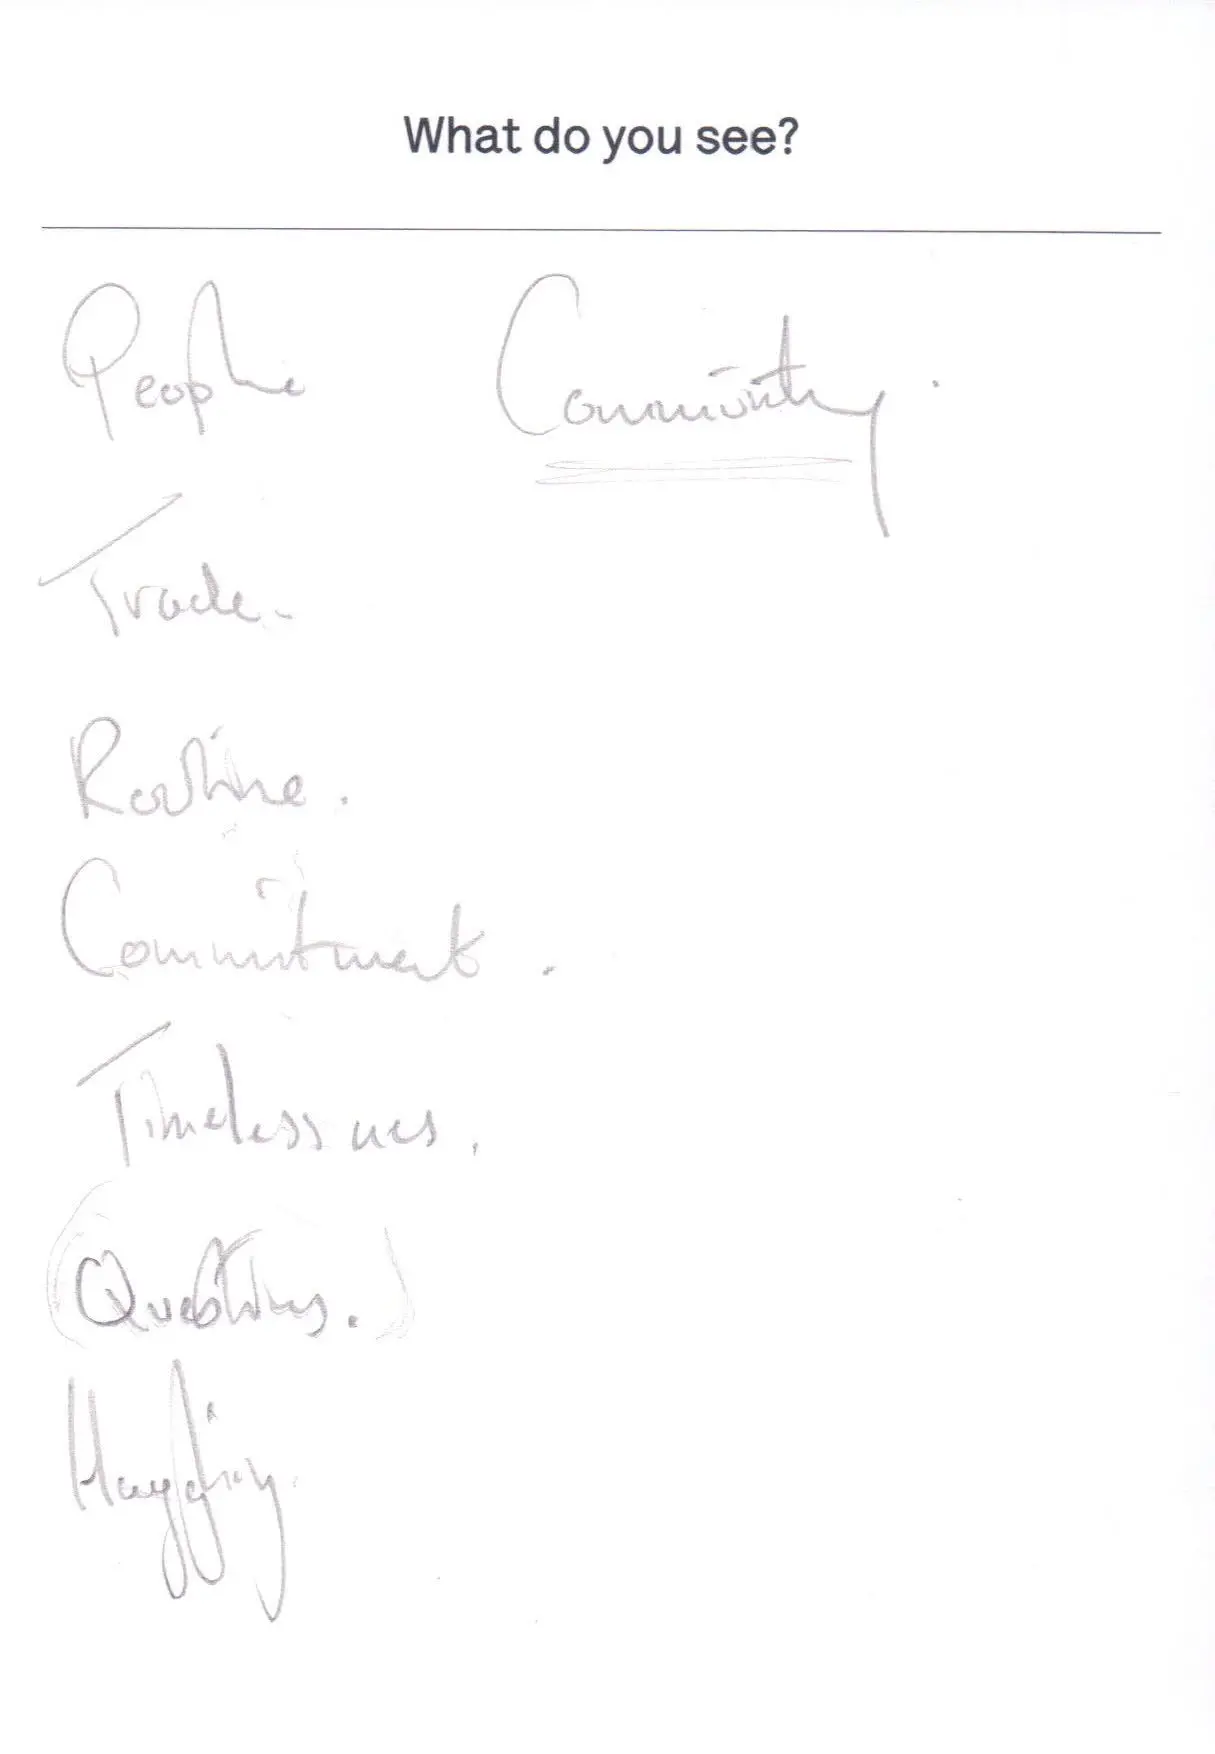 What do you see?
People Community.
Trade.
Routine.
Commitment.
Timelessness.
Questions.